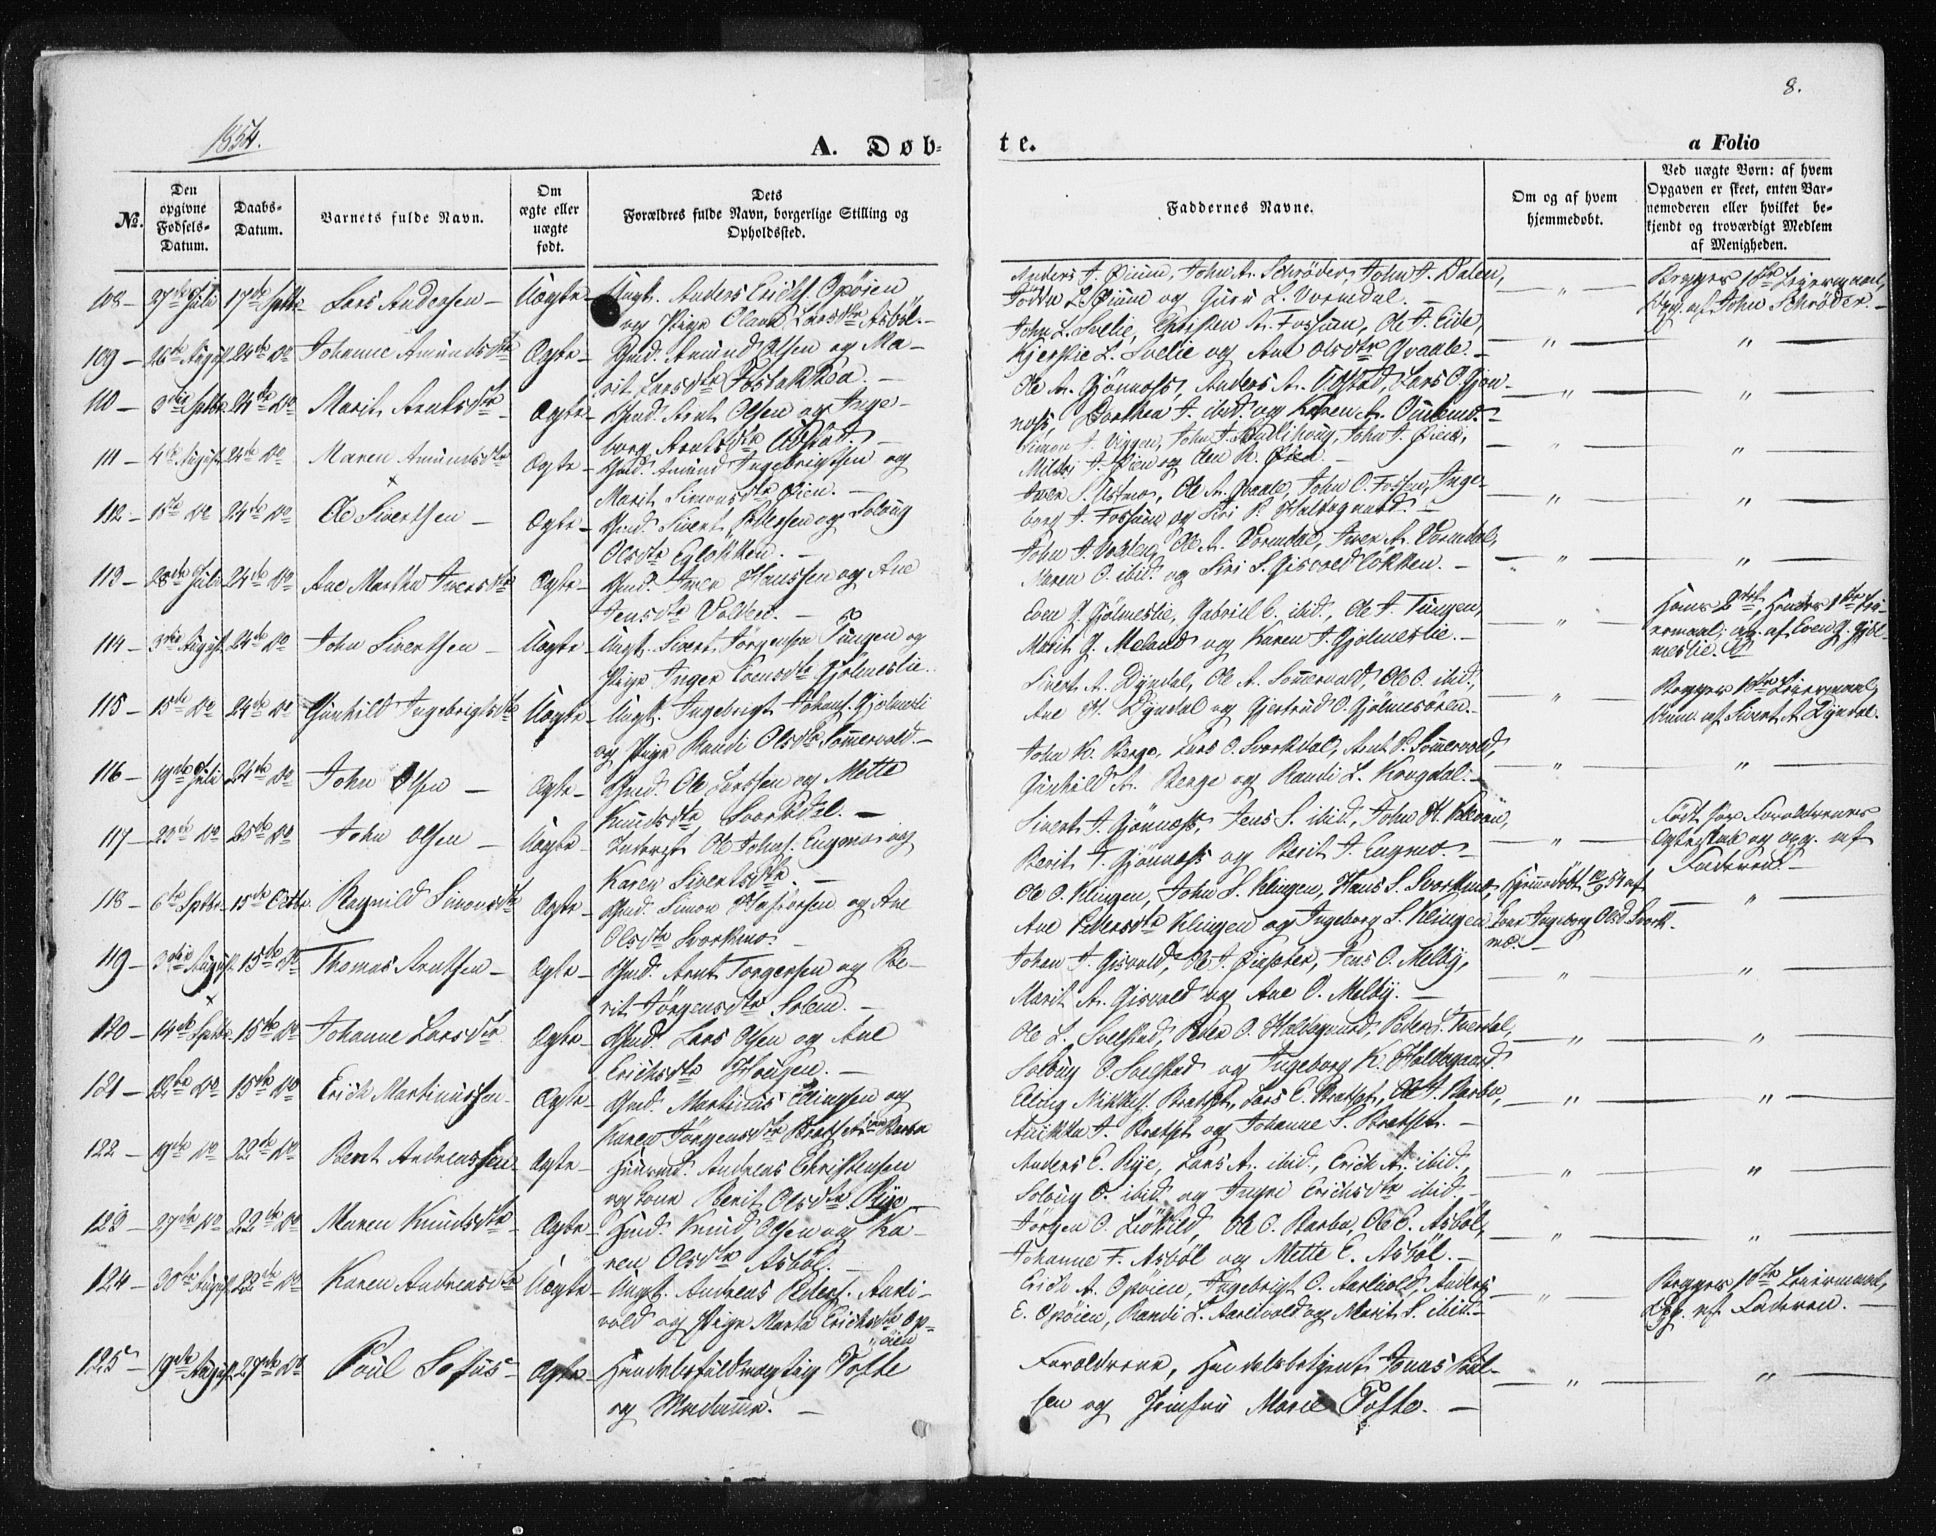 1854.
8.
A. Døb-
te.
a Folio
No.
Den opgivne Fødsels-Datum.
Daabs-Datum.
Varnets fulde Navn.
Om ægte eller uægte født.
Dets Forældres fulde Navn, borgerlige Stilling og Opholdssted.
Faddernes Navne.
Om og af hvem hjemmedøbt.
Ved uægte Børn: af hvem Opgaven er skeet, enten Barnemoderen eller hvilket bekjendt og troværdigt Medlem af Menigheden.
108 – 27de Juli 17de Septbr Lars Andersen – Uægte – Ungk. Anders Erichs. Opøien
og Pige Olava Larsdtr Asbøl. –
Anders J. Øium, John A. Schrøder, John J. Dalen,
L. Øium og Guru L. Vormdal. –
Begges 1ste Leiermaal,
Opg. af John Schrøder. –
109 – 26de August 24de Do Johanne Amundsdtr Ægte – Gmd. Amund Olsen og Ma-
rit Larsdtr Fossbakken. –
John L. Svelie, Christen A. Fossum, Ole J. Eide,
Kjerstie L. Svelie og Ane Olsdtr Qvaale. –
110 – 3die Septbr 24de Do Marit Arntsdtr – Ægte – Gmd. Arnt Olsen og Inge-
borg Arntsdtr
Ole A. Gjønnæss, Anders A. Ustad, Lars O. Gjøn-
næss, Dorthea J. ibid. og Karen A.
111 – 4de August 24de Do Maren Amundsdtr Ægte – Gmd. Amund Ingebrigtsen og
Marit Simonsdtr Øien. –
Simon J. Viggen, John J. John J. Øien,
Mildri J. Øien og Elen K. Øien –
112 – 15de Do 24de Do Ole Sivertsen – Ægte – Gmd. Sivert Pettersen og Solvug
Olsdtr Egløkken. –
Iver S. Ustmo, Ole A. Qvaale, John O. Fossen, Inge-
borg J. Fossum og Siri P. Haldegaard –
113 – 28de Juli 24de Do Ane Martha Iversdtr Ægte – Gmd. Iver Hanssen og Ane
Jensdtr Volden. –
John J. Volden, Ole A. Vormdal, Iver A. Vormdal,
Maren O. ibid. og Siri S. Gisvoldløkken. –
114 – 3die August 24de Do John Sivertsen – Uægte – Ungk. Sivert Jørgensen Tungen og
Pige Inger Evensdtr Gjølmeslie.
Even G. Gjølmeslie, Gabriel E. ibid., Ole J. Tungen,
Marit G. Meland og Karen J. Gjølmeslie. –
Hans 2det, Hendes 1ste Lei-
ermaal; opg. af Even G. Gjøl-
meslie.
115 – 15de Do 24de Do Gunhild Ingebrigtsdtr Uægte – Ungk. Ingebrigt Johans. Gjølmesli
og Pige Randi Olsdtr Sommervold. –
Sivert A. Dyrdal, Ole A. Sommervold, Ole O. ibid.,
Ane H. Dyrdal og Gjertrud O. Gjølmesøren. –
Begges 1ste Leiermaal,
af Sivert A. Dyrdal.
116 – 19de Juli 24de Do John Olsen – Ægte – Gmd. Ole Larssen og Mette
Knudsdtr Svorkdal. –
John K. Berge, Lars O. Svorkdal, Arnt P. Sommervold,
Gunhild A. Berge og Randi L. Krogdal. –
117 – 23de Do 25de Do John Olsen – Uægte – Inderst Ole Johns. Engmo og
Karen Sivertsdtr. –
Sivert J. Gjønnæss, Jens S. ibid., John H. Kleven,
Berit J. Gjønnæss og Berit J. Engmo. –
Født før Forældrenes
Ægteskab og opg. af
Faderen. –
118 – 6te Septbr 15de Octbr Ragnild Simonsdtr Ægte – Gmd. Simon og Ane
Olsdtr Svorkmo. –
Ole O. Klingen, John S. Klingen, Hans S. Svorkmo,
Ane Pettersdtr Klingen og Ingeborg S. Klingen
Hjemmedøbt 10/9 54 af
Ingeborg Olsd. Svork-
mo. –
119 – 3die August 15de Do Thomas Arntsen – Ægte – Gmd. Arnt Torgersen og Be-
rit Jørgensdtr Solem. –
Johan J. Gisvold, Ole J. Jens O. Melby,
Marit A. Gisvold og Ane O. Melby. –
120 – 14de Septbr 15de Do Johanne Larsdtr Ægte – Gmd. Lars Olsen og Ane
Erichsdtr Hougen. –
Ole L. Solstad, Peder O. Haldegaard, Peder
Solvug O. Solstad og Ingeborg K. Haldegaard
121 – 12te Do 15de Do Erich Martinussen – Ægte – Gmd. Martinus Ellingsen og
Karen Jørgensdtr Bratset Barbo
Elling Mikkels. Bratset, Lars E. Bratset, Ole J. Barbo,
Anikka J. Bratset og Johanne S. Bratset. –
122 – 19de Do 22de Do Beret Andreassen Ægte – Huusmd. Andreas Christensen
og Kone Berit Olsdtr Rye
Anders E. Rye, Lars A. ibid., Erick A. ibid.,
Solvug O. ibid. og Ingri Erichsdtr ibid. –
123 – 27de Do 22de Do Maren Knudsdtr – Ægte – Gmd. Knud Olsen og Ka-
ren Olsdtr Asbøl. –
Jørgen O. Liøkild, Ole O. Barbo, Ole E. Asbøl,
Johanne F. Asbøl og Mette E. Asbøl. –
124 – 30te August 22de Do Karen Andreasdtr Uægte – Ungk. Andreas Peders. Aarli-
vold og Pige Marta Erichsdtr Op-
øien
Erich A. Opøien, Ingebrigt O. Aarlivold, Anders
E. Opøien, Randi L. Aarlivold og Marit S. ibid. –
Begges 1ste Leiermaal,
Opg. af Faderen. –
125 – 19de August 27de Do Poul Sofus – Ægte – Handelsfuldmægtig Tofte
og Madame. –
Forældrene, Handelsbetjent Jonas Poul-
sen og Jomfru Marie Tofte. –